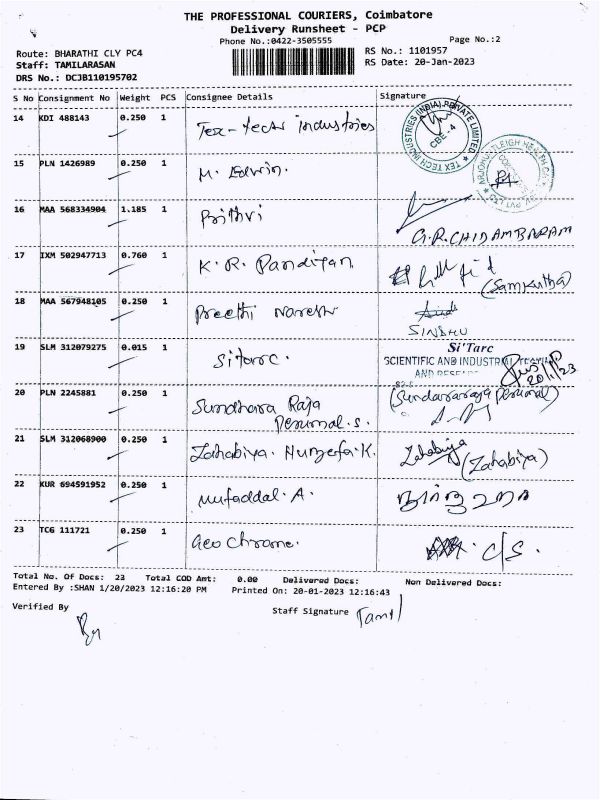 THE PROFESSIONAL COURIERS, Coimbatore
Delivery Runsheet - PCP
Phone No.:0422-3505555 Page No.:2
Route: BHARATHI CLY PC4 RS No.: 1101957
Staff: TAMILARASAN RS Date: 20-Jan-2023
DRS No.: DCJB110195702
S No Consignment No Weight PCS Consignee Details Signature
14 KDI 488143 0.250 1 Tex-tech industries
TEX TECH INDUSTRIES (INDIA) PRIVATE LIMITED CBE-4
15 PLN 1426989 0.250 1 M. Edwin.
16 MAA 568334904 1.185 1 Prithvi G.R.CHIDAMBARAM
17 IXM 502947713 0.760 1 K. R. Pandiyan (Samyutha)
18 MAA 567948105 0.250 1 Preethi Naresh
SINDHU
19 SLM 312079275 0.015 1 Sitarc. Si'Tarc
SCIENTIFIC AND INDUSTRIAL TESTING
AND RESEARCH
20/1/23
20 PLN 2245881 0.250 1 Sundhara Raja
Perumal.s. (Sundararaja Perumal)
21 SLM 312068900 0.250 1 Zahabiya. Huzefa.K. Zahabiya (Zahabiya)
22 KUR 694591952 0.250 1 Mufaddal.A.
23 TCG 111721 0.250 1 Geo Chrome. C/S.
Total No. Of Docs: 23 Total COD Amt: 0.00 Delivered Docs: Non Delivered Docs:
Entered By :SHAN 1/20/2023 12:16:20 PM Printed On: 20-01-2023 12:16:43
Verified By Staff Signature Tamil